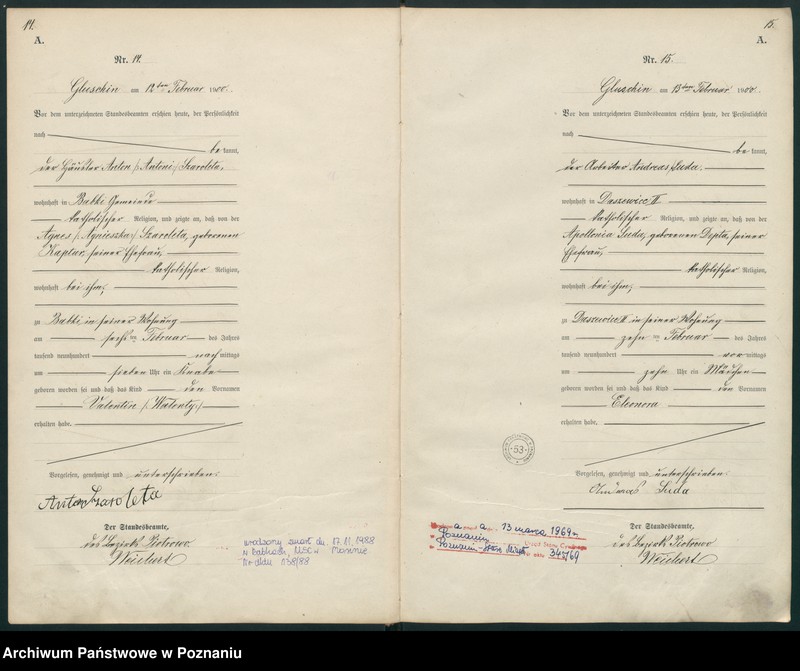 14.
A.
Nr. 14.
Gluschin am 12ten Februar 1900.
Vor dem unterzeichneten Standesbeamten erschien heute, der Persönlichkeit
nach
be kannt,
der Häusler Anton /Antoni/ Szaroleta,
wohnhaft in Babki Gemeinde
katholischer Religion, und zeigte an, daß von der
Agnes /Agnieszka/ Szaroleta, geborenen
Kaptur, seiner Ehefrau,
katholischer Religion,
wohnhaft bei ihm,
zu Babki in seiner Wohnung
am sechsten Februar des Jahres
tausend neunhundert nach mittags
um sieben Uhr ein Knabe
geboren worden sei und daß das Kind den Vornamen
Valentin /Walenty/
erhalten habe.
Vorgelesen, genehmigt und unterschrieben.
Anton Szaroleta
Der Standesbeamte,
des Bezirks Piotrowo
Weichert
urodzony zmarł dn. 17.11.1988
w Babkach, USC w Mosinie
Nr aktu 138/88
15.
A.
Nr. 15.
Gluschin am 13ten Februar 1900.
Vor dem unterzeichneten Standesbeamten erschien heute, der Persönlichkeit
nach
be kannt,
der Arbeiter Andreas Suda.
wohnhaft in Daszewice II
katholischer Religion, und zeigte an, daß von der
Apollonia Suda, geborenen Depta, seiner
Ehefrau,
katholischer Religion,
wohnhaft bei ihm,
zu Daszewice II in seiner Wohnung
am zehnten Februar des Jahres
tausend neunhundert vor mittags
um zehn Uhr ein Mädchen
geboren worden sei und daß das Kind den Vornamen
Eleonora
erhalten habe.
53
Vorgelesen, genehmigt und unterschrieben.
Andreas Suda
Der Standesbeamte,
des Bezirks Piotrowo
Weichert
a a 13 marca 1969 r.
Poznaniu
Urząd Stanu Cywilnego
Poznań-Stare Miasto aktu 345/69
Archiwum Państwowe w Poznaniu